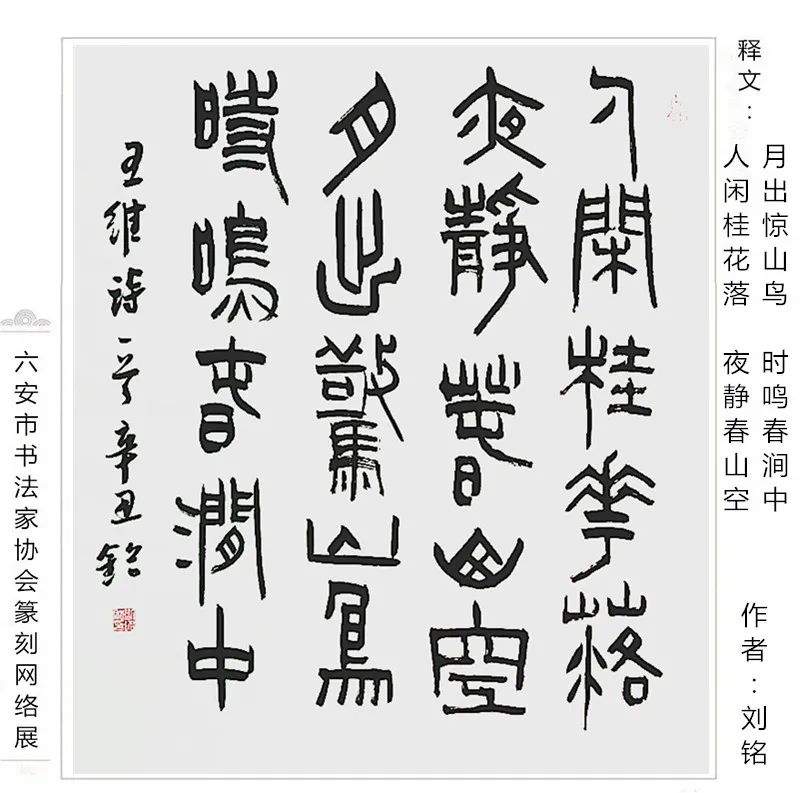 释文：
人闲桂花落 夜静春山空
月出惊山鸟 时鸣春涧中
作者：刘铭
人閑桂華落
夜靜春山空
月出驚山鳥
時鳴春澗中
王維詩一首辛丑銘
六安市书法家协会篆刻网络展